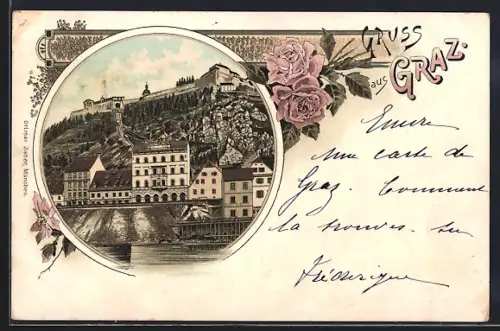 GRUSS
aus GRAZ.
Encore
une carte de
Graz. Comment
la trouves-tu
Frédérique
Ottmar Zieher, München.